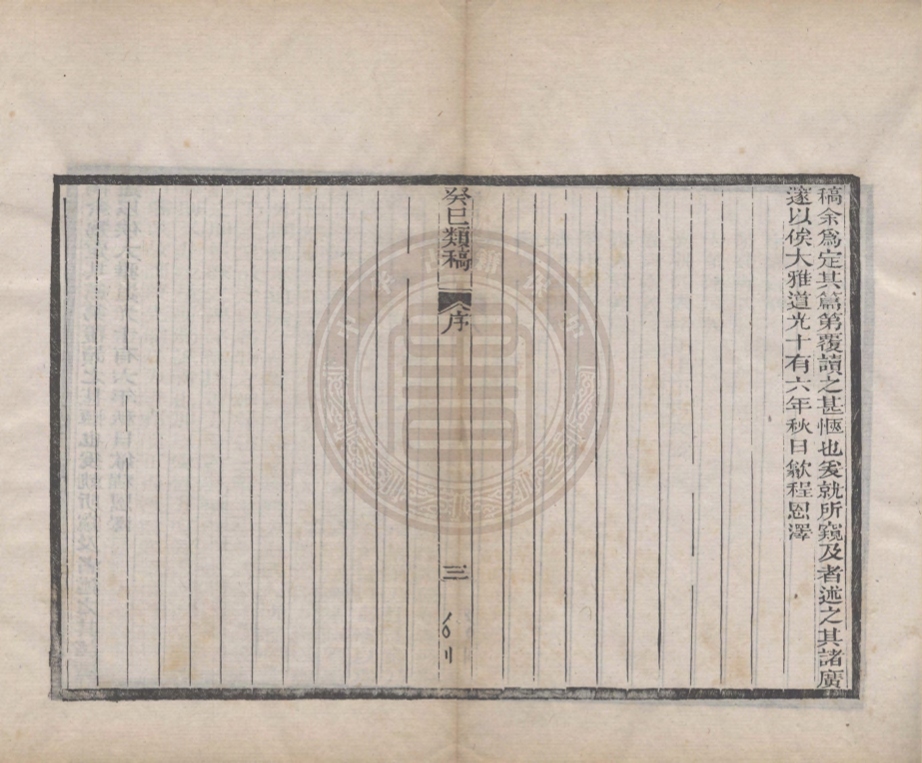 稿余為定其篇第覆讀之甚愜也爰就所窺及者述之其諸廣
邃以俟大雅道光十有六年秋日歙程恩澤
癸巳類稿 序 三